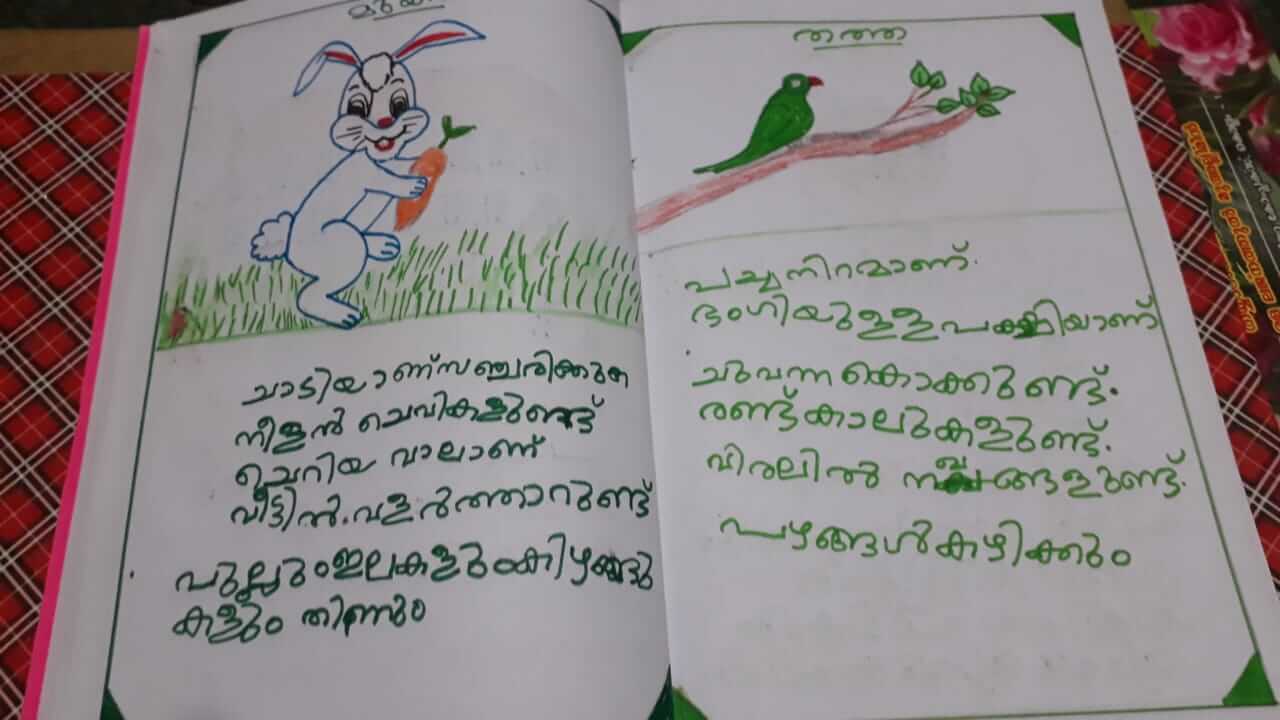 മുയൽ
ചാടിയാണ്സഞ്ചരിക്കുന
നീളൻ ചെവികളുണ്ട്
ചെറിയ വാലാണ്
വീട്ടിൽ.വളർത്താറുണ്ട്
പുല്ലുംഇലകളുംകിഴങ്ങു
കളും തിണ്ണും
തത്ത
പച്ചനിറമാണ്.
ഭംഗിയുള്ളപക്ഷിയാണ്
ചുവന്നകൊക്കുണ്ട്.
രണ്ട്കാലുകളുണ്ട്.
വിരലിൽ നഖങ്ങളുണ്ട്.
പഴങ്ങൾകഴിക്കും